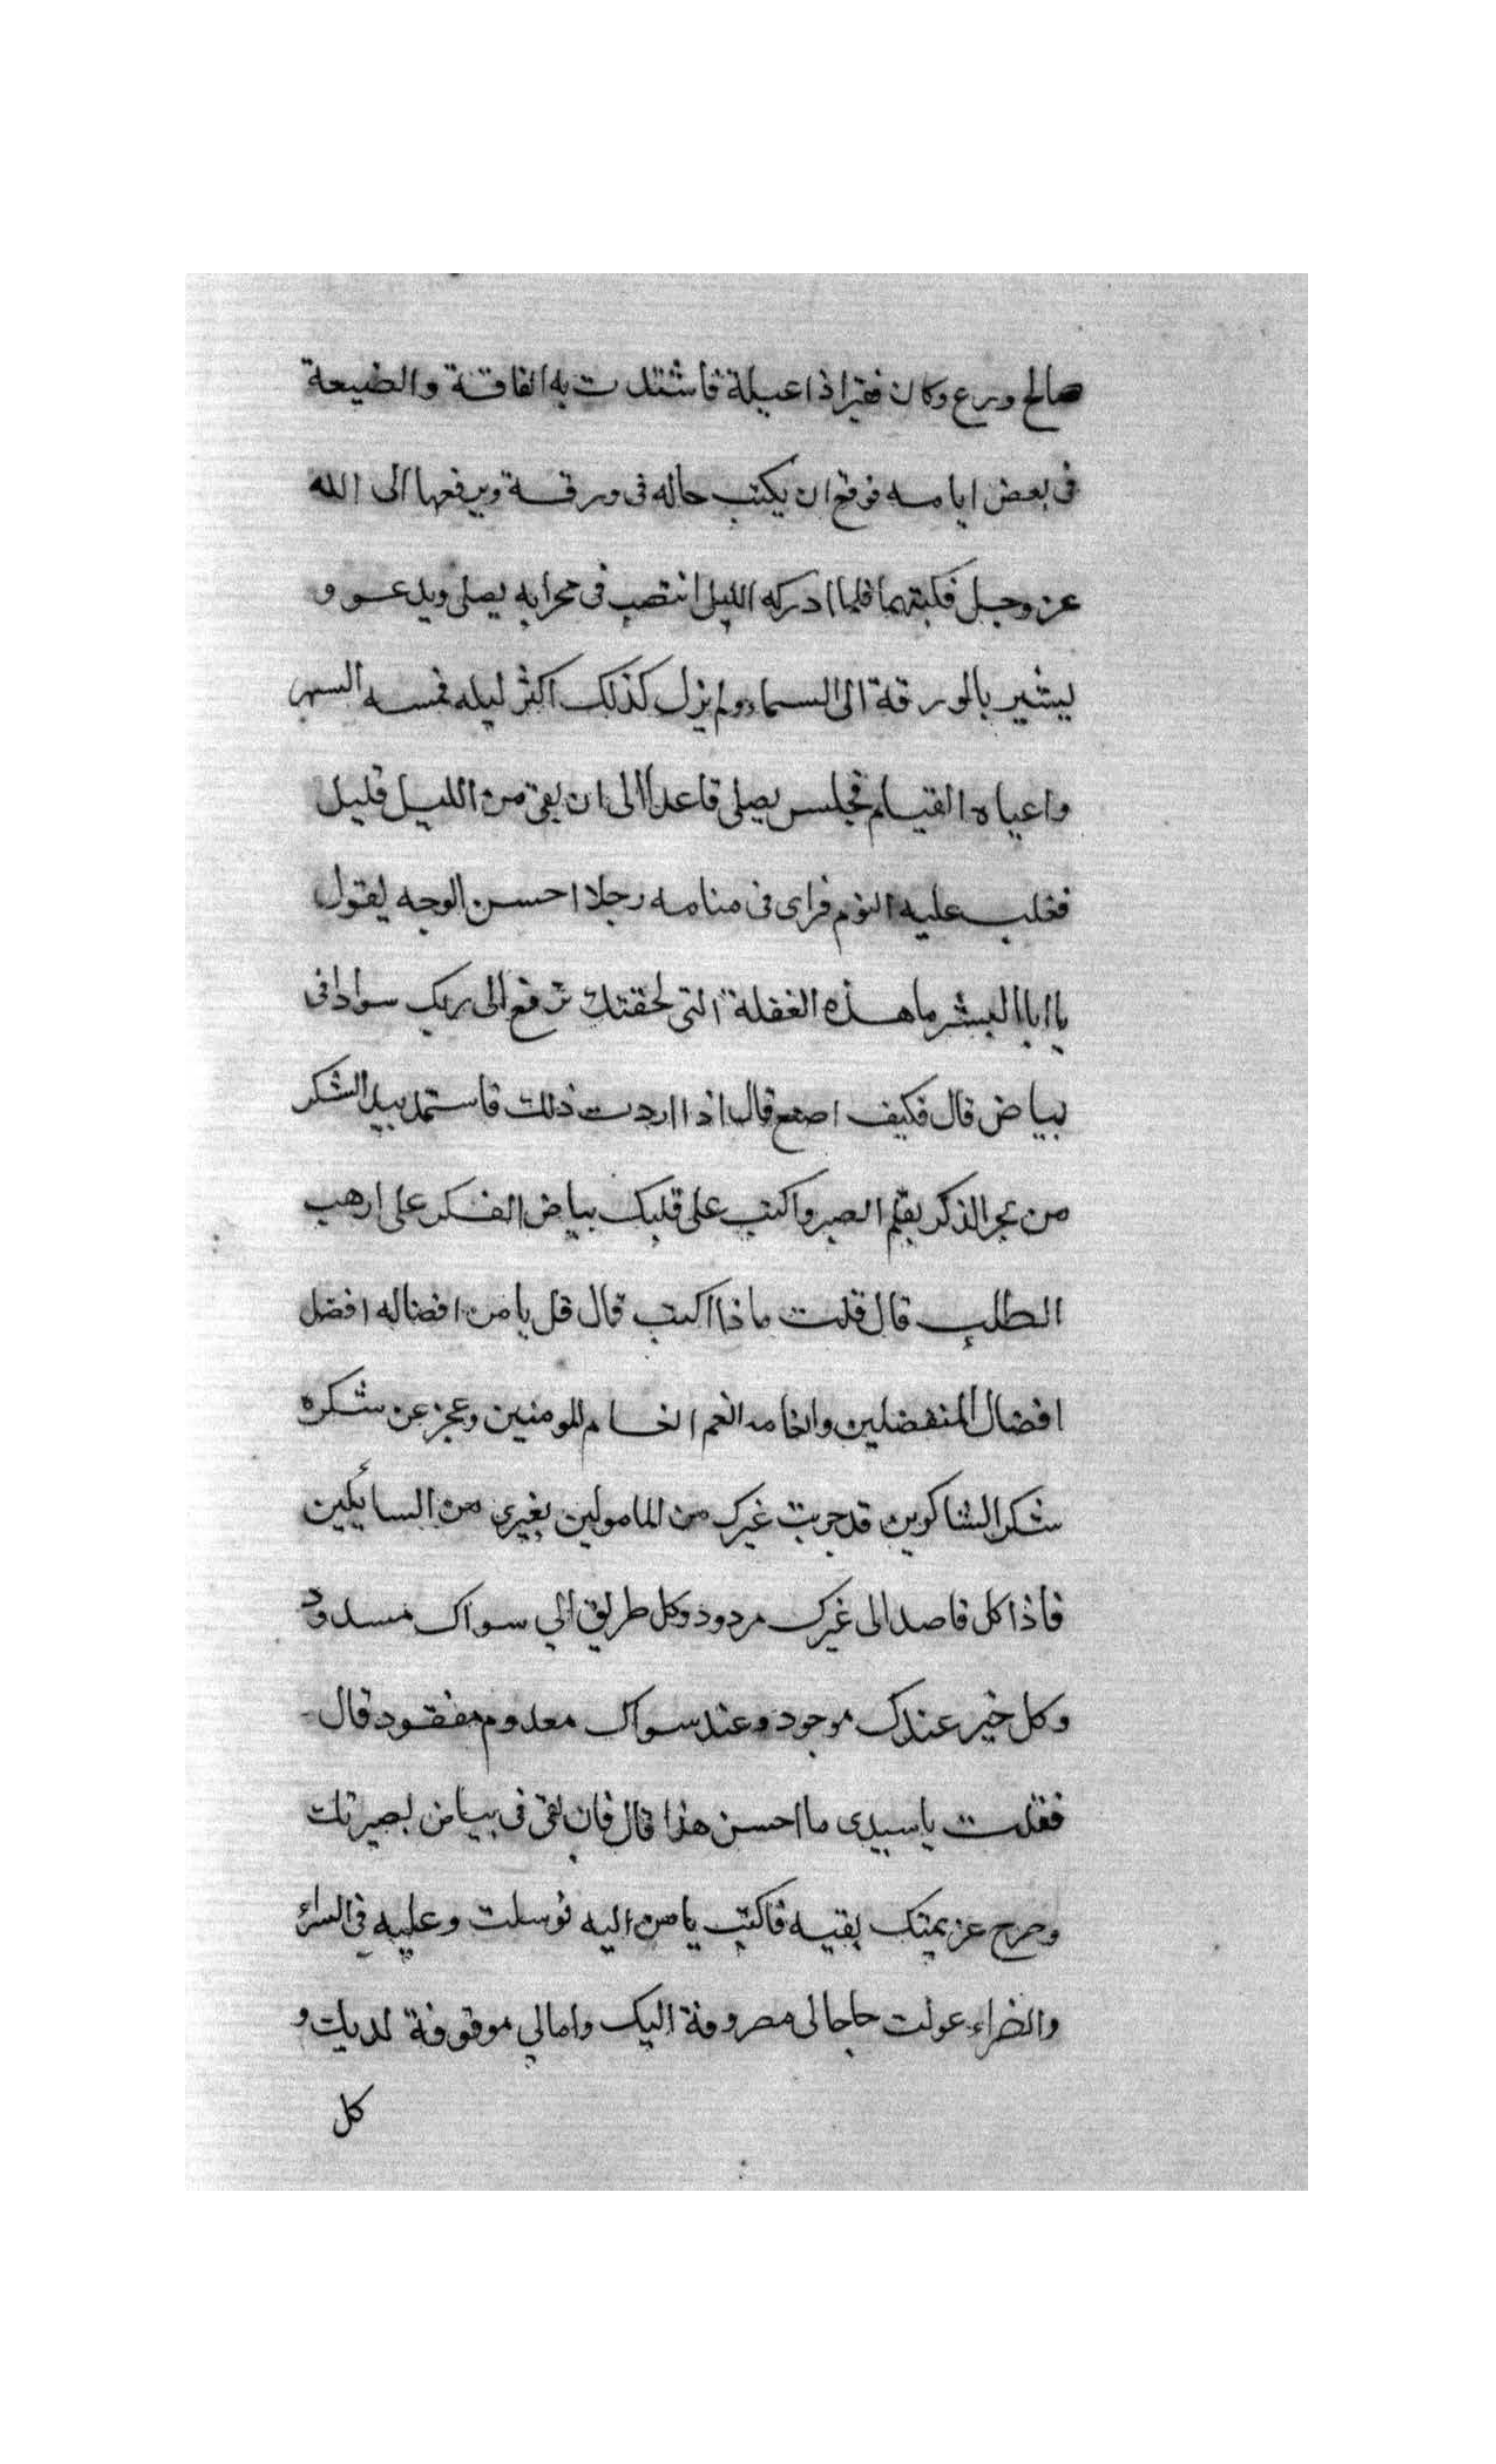 صالح ورع وكان فقيرا ذا عيلة فاشتدت به الفاقة والضيعة
فى بعض ايامه فوقع ان يكتب حاله فى ورقة ويرفعها الى الله
عز وجل فكتبها فلما ادركه الليل انتصب فى محرابه يصلى ويدعو و
يشير بالورقة الى السماء ولم يزل كذلك اكثر ليله فمسه السهر
واعياه القيام فجلس يصلى قاعدا الى ان بقى من الليل قليل
فغلب عليه النوم فراى فى منامه رجلا احسن الوجه يقول
يا ابا البشر ما هذه الغفلة التى لحقتك ترفع الى ربك سوادا فى
بياض قال فكيف اصنع قال اذا اردت ذلك فاستمد بيد الشكر
من بحر الذكر بقلم الصبر واكتب على قلبك بياض الفكر على ارهب
الطلب قال قلت ماذا اكتب قال قل يا من افضاله افضل
افضال المتفضلين وانعامه انعم انعام المومنين وعجز عن شكره
شكر الشاكرين قد جربت غيرك من المامولين بغيرى من السائلين
فاذا كل قاصد الى غيرك مردود وكل طريق الي سواك مسدود
وكل خير عندك موجود وعند سواك معدوم مفقود قال
فقلت يا سيدى ما احسن هذا قال فان بقى فى بياض بصيرتك
وحرج عزيمتك بقيه فاكتب يا من اليه توسلت وعليه فى السرائ
والضراء عولت حاجاتى مصروفة اليك وامالي موقوفة لديك و
كل